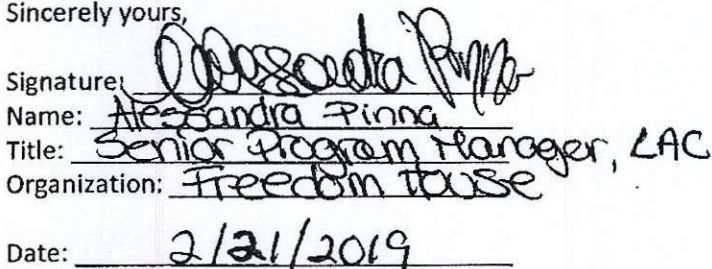 Sincerely yours,
Signature: Alessandra Pinna
Name: Alessandra Pinna
Title: Senior Program Manager, LAC
Organization: Freedom House
Date: 2/21/2019